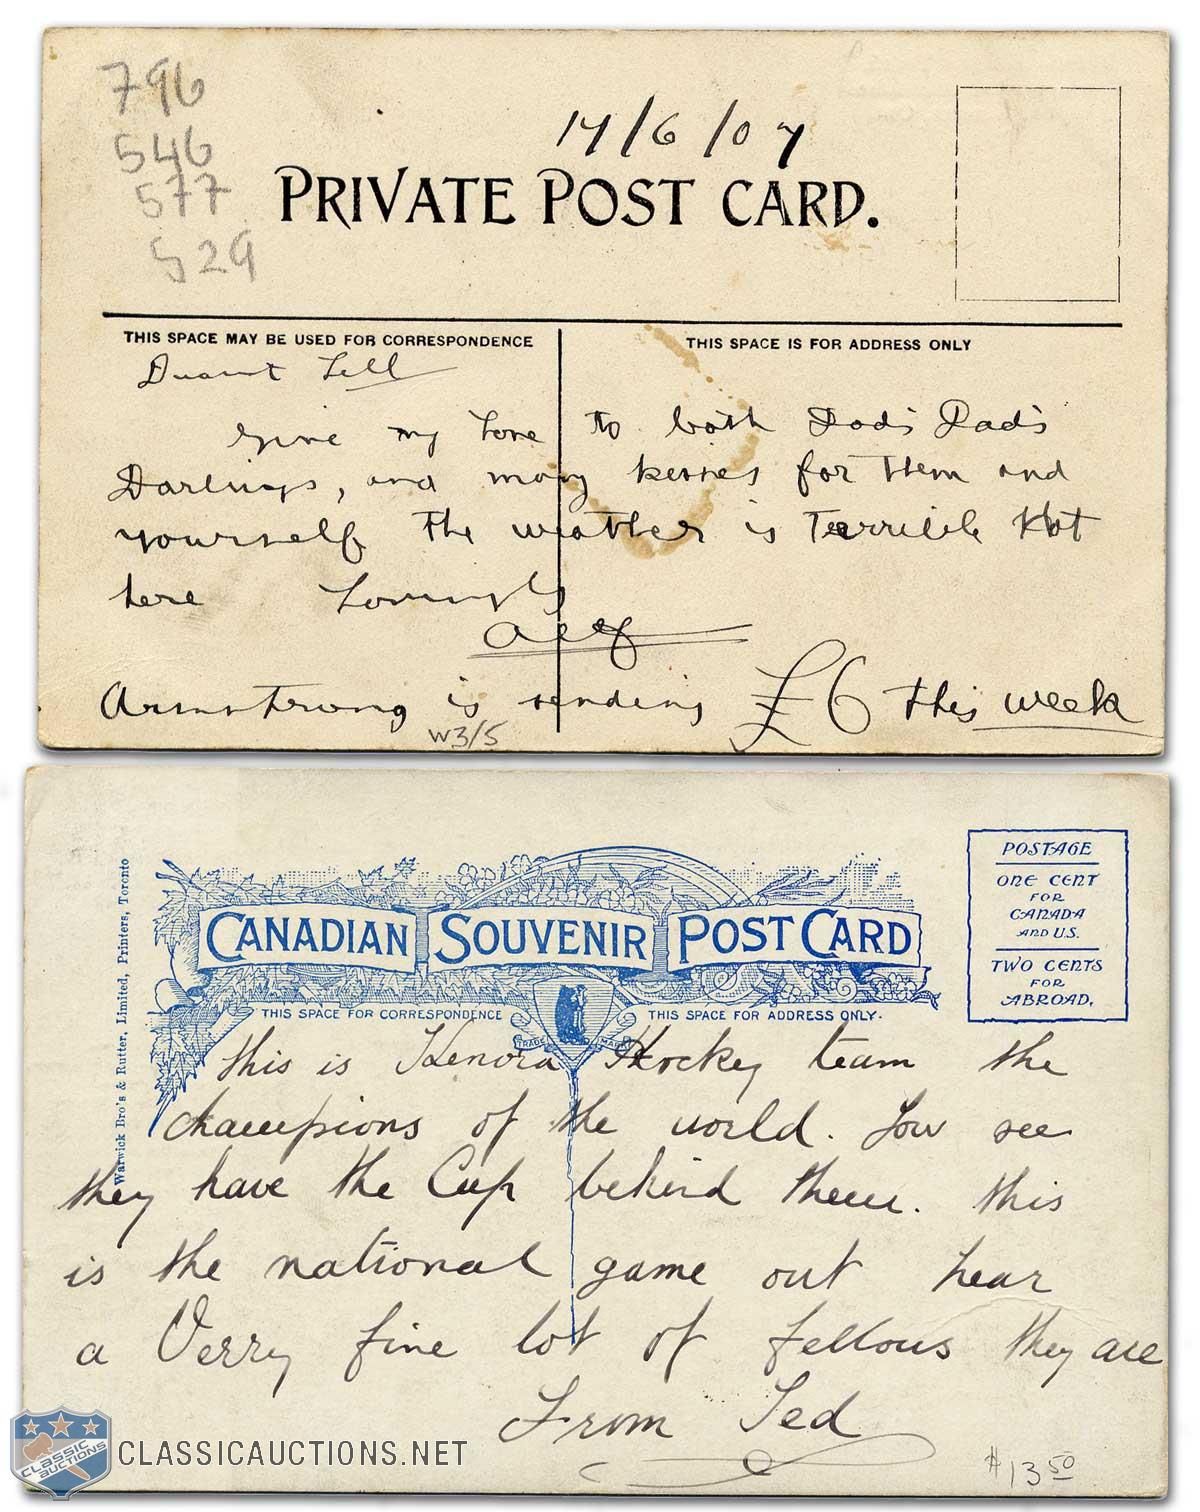 796
546
577
529
14/6/07
PRIVATE POST CARD.
THIS SPACE MAY BE USED FOR CORRESPONDENCE
THIS SPACE IS FOR ADDRESS ONLY
Dearest Lell
Give my Love to both Dad's Dad's
Darlings, and many kisses for them and
yourself The weather is Terrible Hot
here Lovingly
Alf
Armstrong is sending £6 this week
W3/5
Warwick Bro's & Rutter, Limited, Printers, Toronto
CANADIAN SOUVENIR POST CARD
POSTAGE
ONE CENT
FOR
CANADA
AND U.S.
TWO CENTS
FOR
ABROAD.
THIS SPACE FOR CORRESPONDENCE
THIS SPACE FOR ADDRESS ONLY.
TRADE MARK
this is Kenora Hockey team the
champions of the world. You see
they have the Cup behind them. this
is the national game out hear
a Verry fine lot of fellows they are
From Ted
$13.50
CLASSIC AUCTIONS
CLASSICAUCTIONS.NET